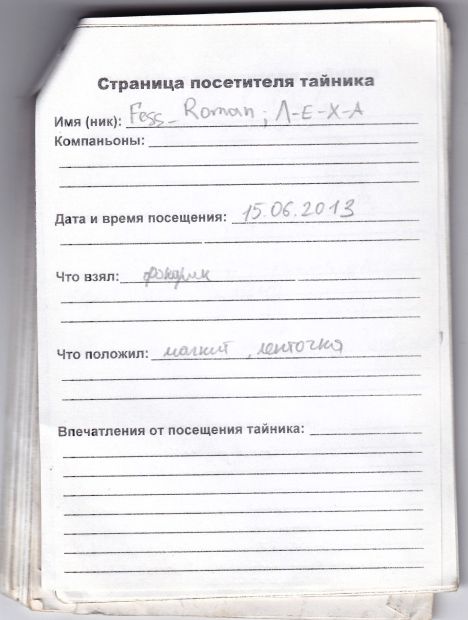 Страница посетителя тайника
Имя (ник): Fess_Roman; Л-Е-Х-А
Компаньоны:
Дата и время посещения: 15.06.2013
Что взял: фонарик
Что положил: магнит, ленточка
Впечатления от посещения тайника: